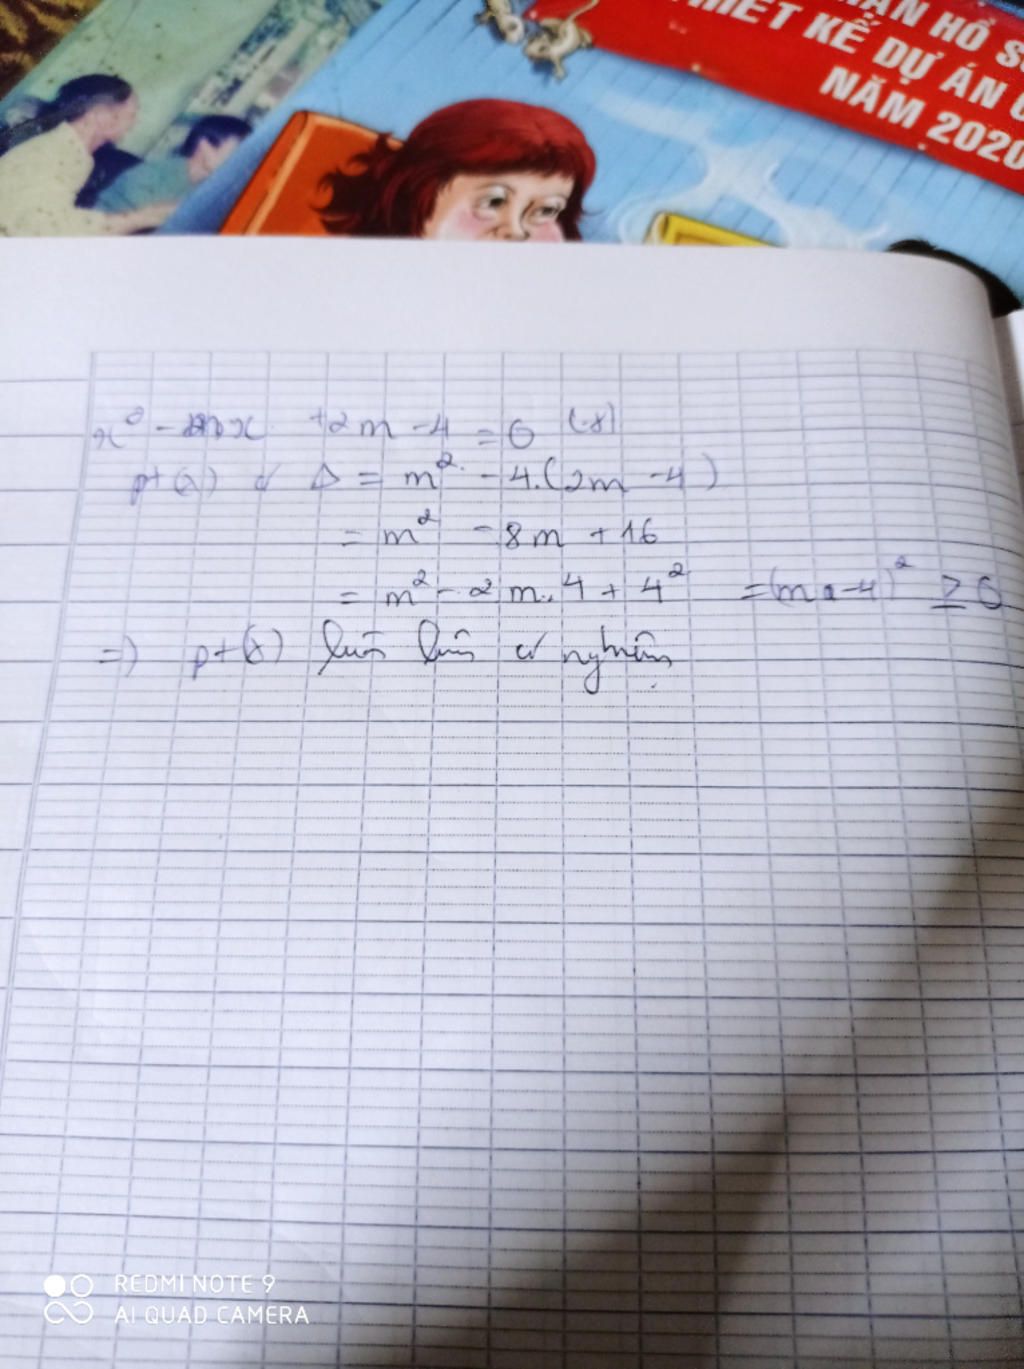 ẬN HỒ S
THIẾT KẾ DỰ ÁN
NĂM 2020
x² - mx + 2m - 4 = 0 (*)
pt (*) có Δ = m² - 4.(2m - 4)
= m² - 8m + 16
= m² - 2m.4 + 4² = (m - 4)² ≥ 0
=) pt (*) luôn luôn có nghiệm
REDMI NOTE 9
AI QUAD CAMERA